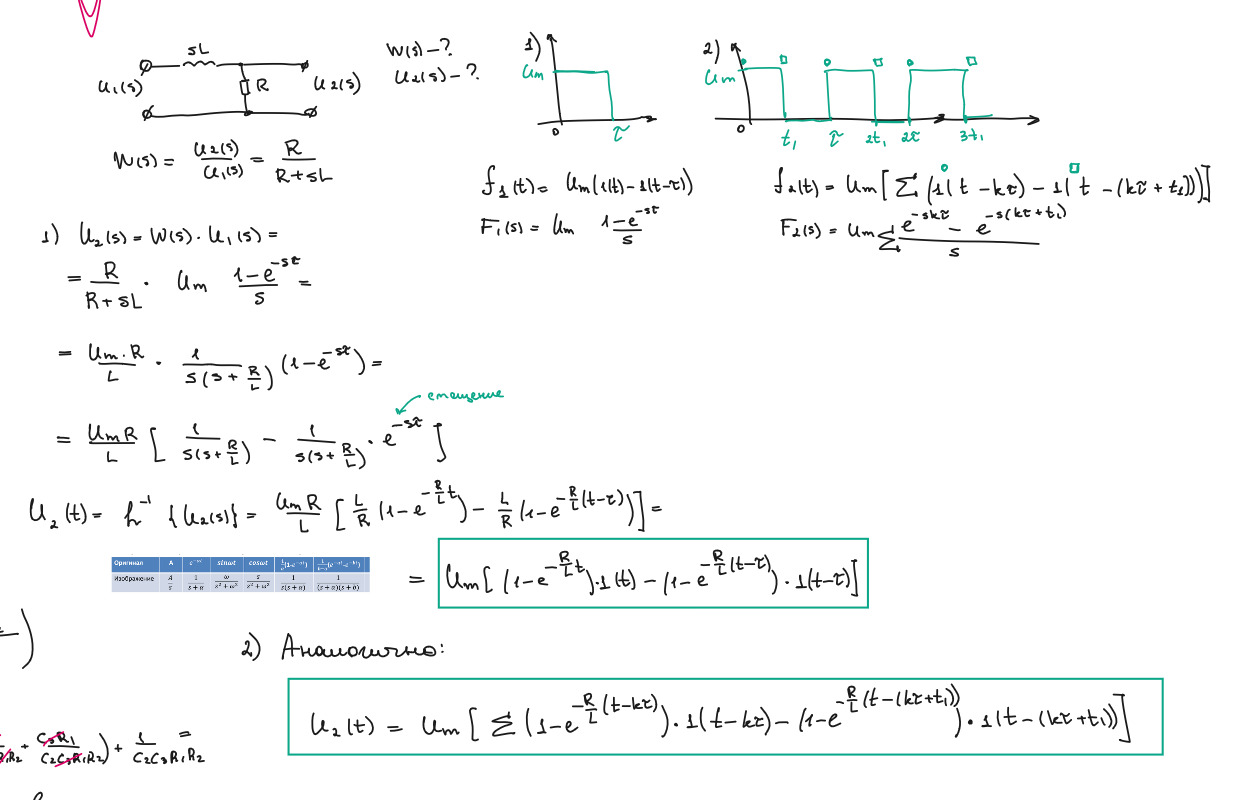 sL
R
U₁(s)
U₂(s)
W(s) – ?
U₂(s) – ?
1)
Um
0
τ
2)
Um
0 t₁ τ 2t₁ 2τ 3t₁
W(s) = U₂(s)/U₁(s) = R/(R+sL)
f₁(t) = Um(1(t)-1(t-τ))
F₁(s) = Um (1-e^(-sτ))/s
f₂(t) = Um[∑(1(t-kτ) - 1(t-(kτ+t₁)))]
F₂(s) = Um∑(e^(-skτ) - e^(-s(kτ+t₁)))/s
1) U₂(s) = W(s)·U₁(s) =
= R/(R+sL) · Um (1-e^(-sτ))/s =
= Um·R/L · 1/(s(s+R/L)) (1-e^(-sτ)) =
смещение
= UmR/L [1/(s(s+R/L)) - 1/(s(s+R/L)) · e^(-sτ)]
U₂(t) = L^(-1){U₂(s)} = UmR/L [L/R (1-e^(-R/L t)) - L/R (1-e^(-R/L (t-τ)))] =
Оригинал A e^(-αt) sinωt cosωt
Изображение A/s 1/(s+α) ω/(s²+ω²) s/(s²+ω²) 1/(s(s+α)) 1/((s+α)(s+b))
= Um[(1-e^(-R/L t))·1(t) - (1-e^(-R/L (t-τ)))·1(t-τ)]
2) Аналогично:
U₂(t) = Um[∑(1-e^(-R/L (t-kτ)))·1(t-kτ) - (1-e^(-R/L (t-(kτ+t₁))))·1(t-(kτ+t₁))]
+ C₃R₁/(C₂C₃R₁R₂)) + 1/(C₂C₃R₁R₂) =